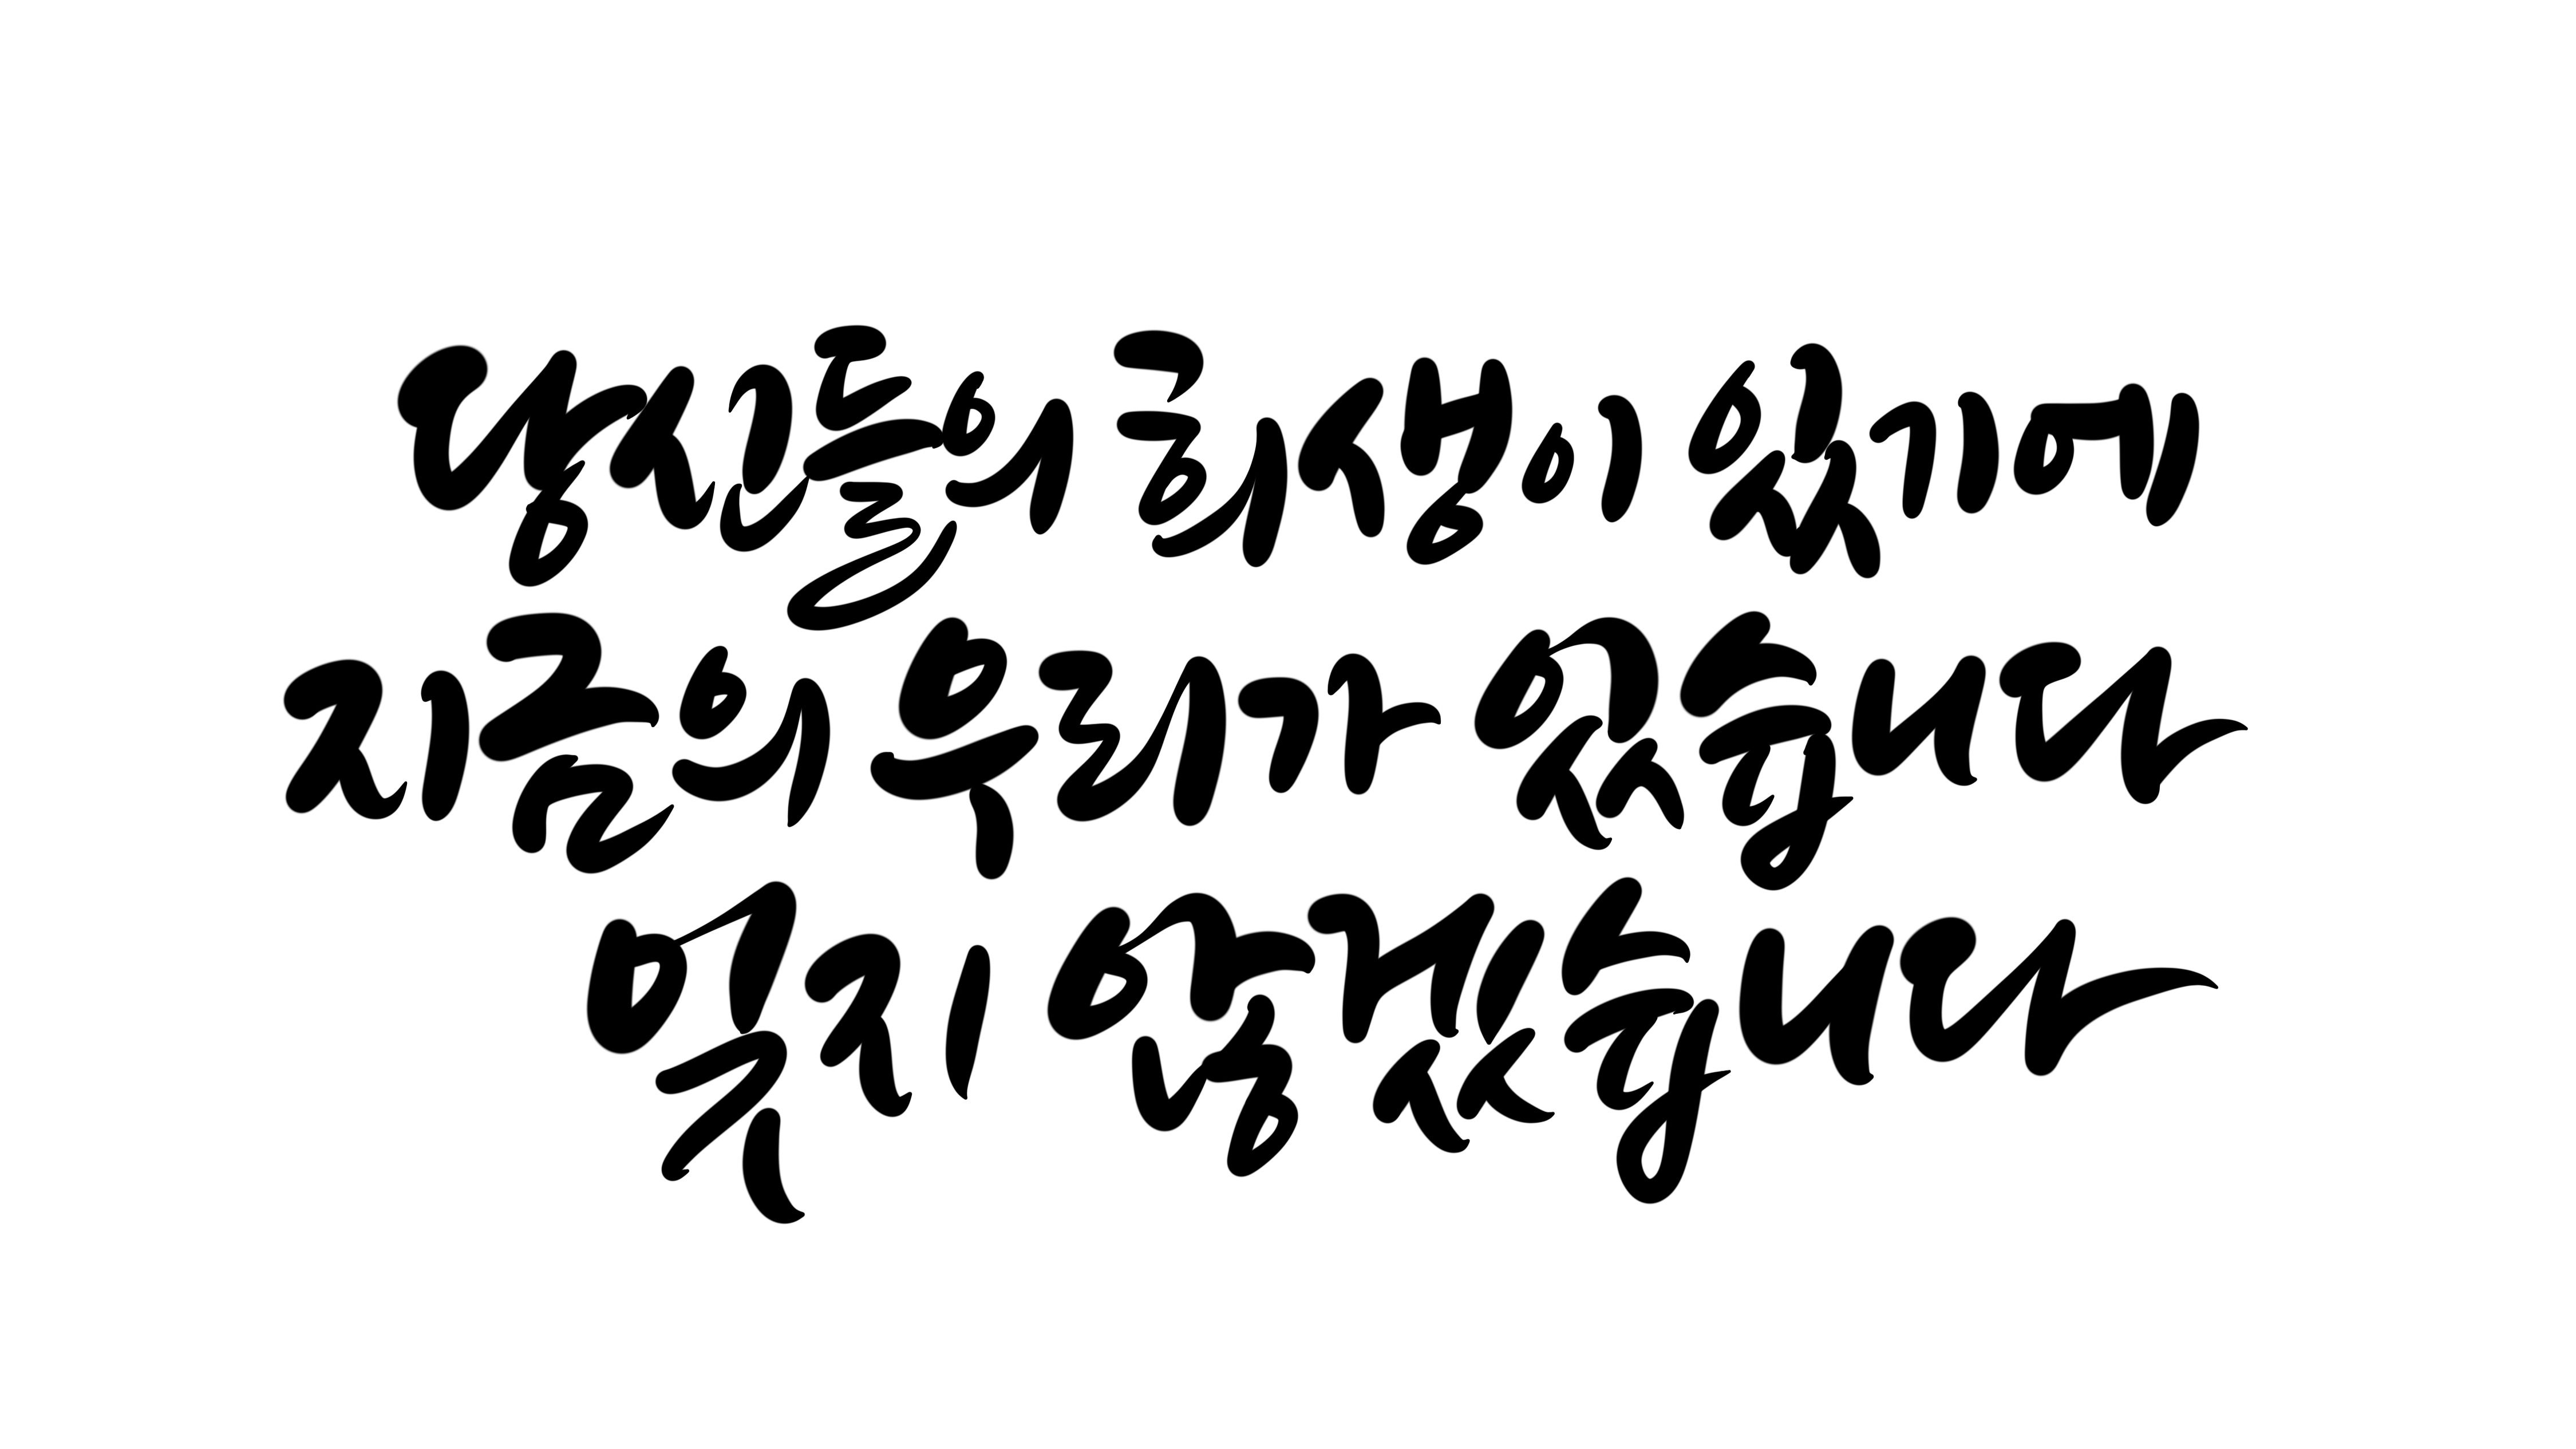 당신들의 희생이 있기에
지금의 우리가 있습니다
잊지 않겠습니다